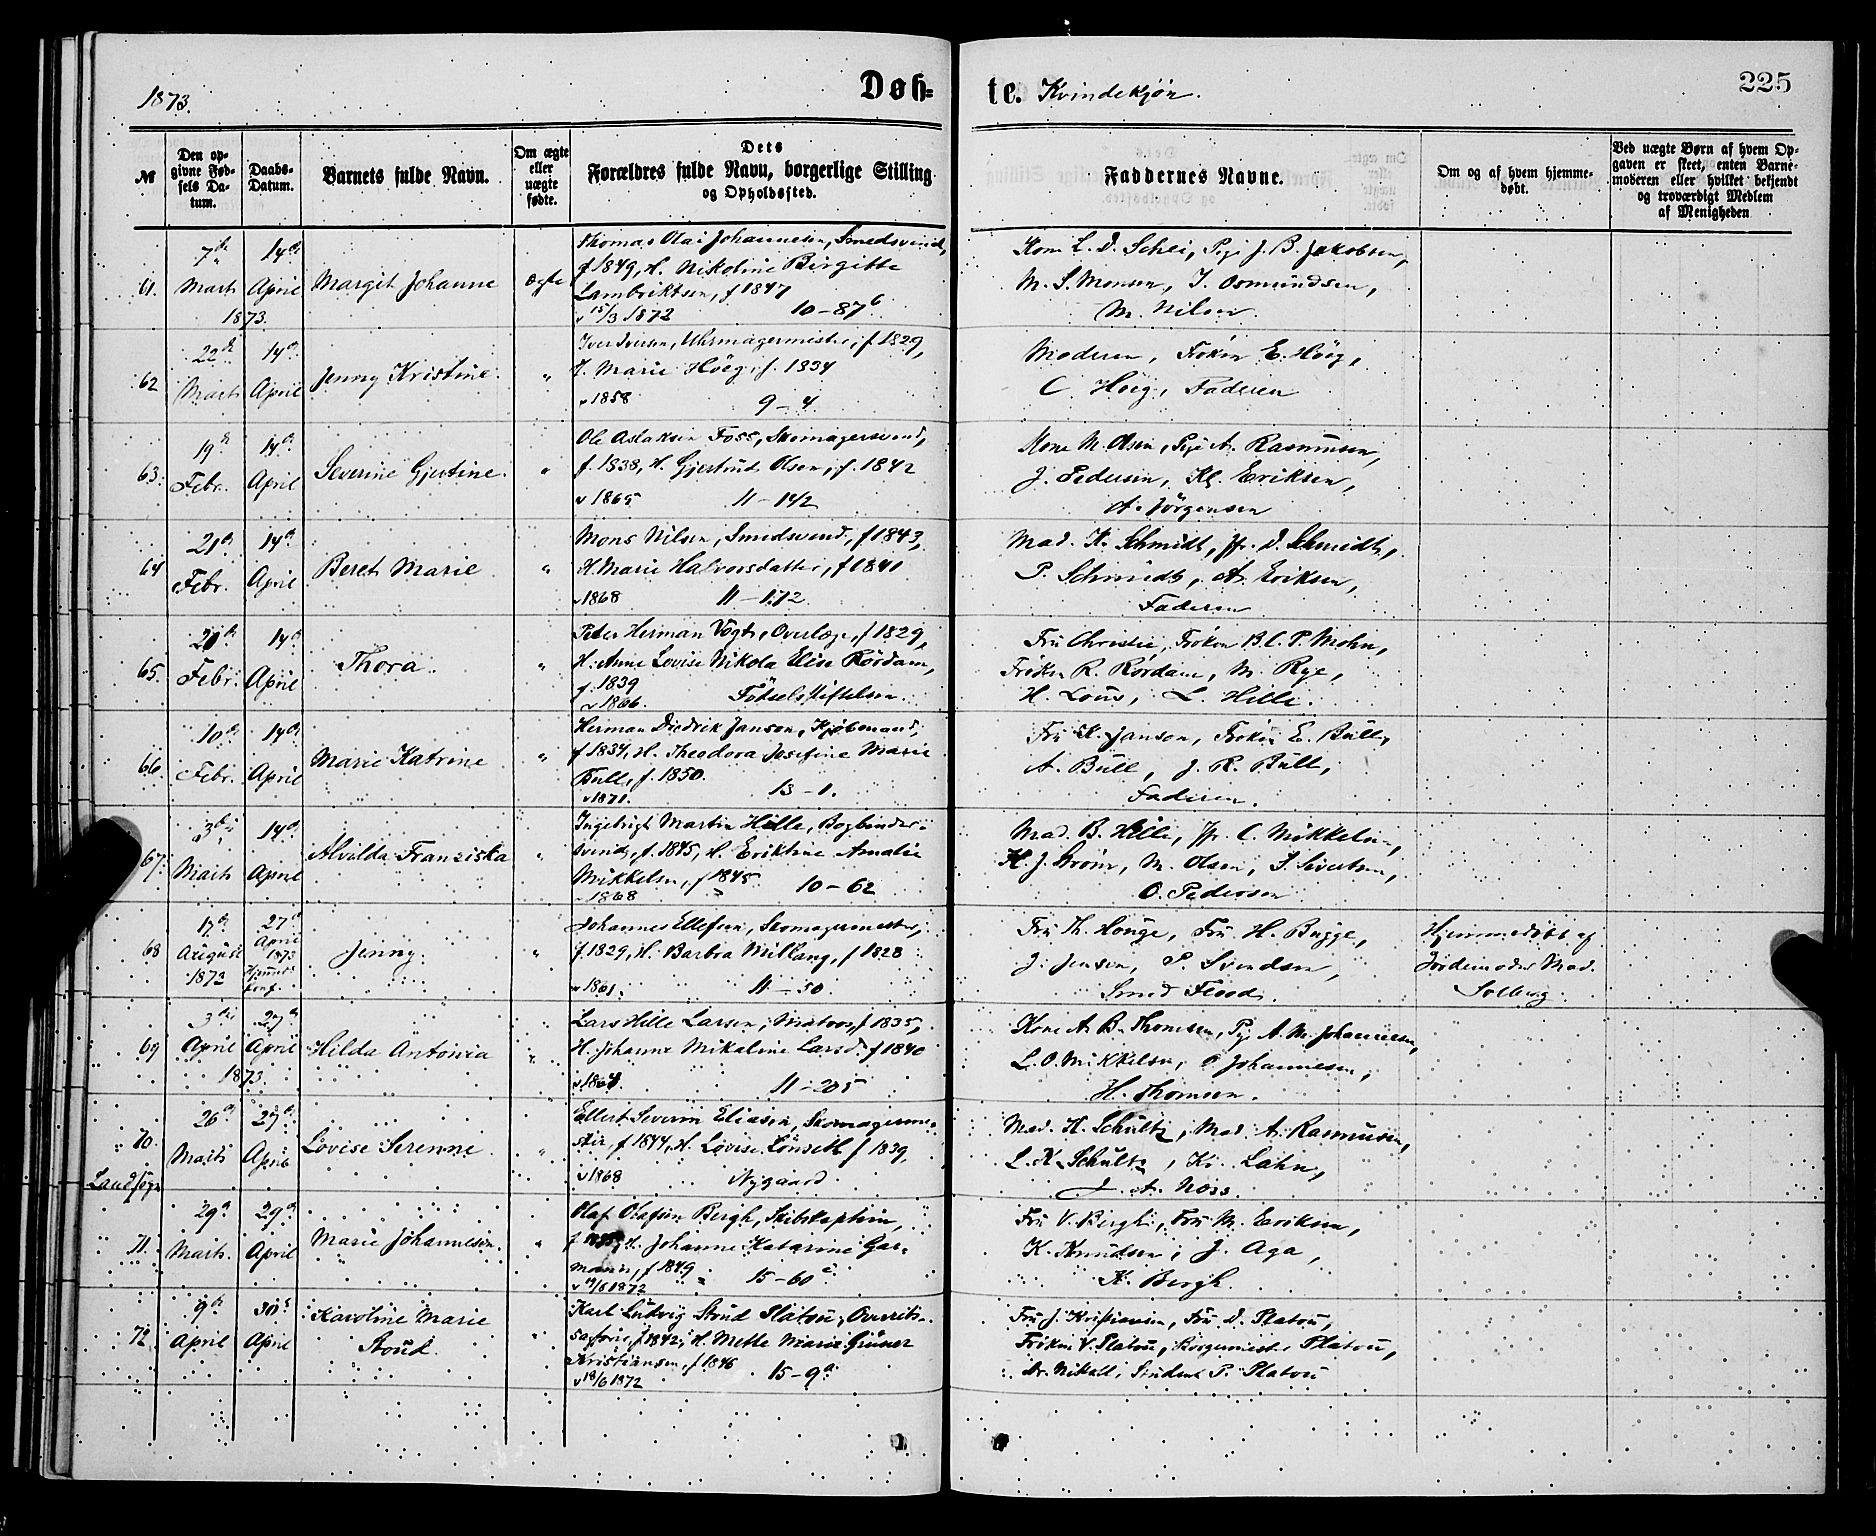 1873.
Døb=
te. Kvindekjön.
225
№
Den op-
givne Fød-
sels Da-
tum.
Daabs-
Datum.
Barnets fulde Navn.
Om ægte
eller
uægte
fødte.
Dets
Forældres fulde Navn, borgerlige Stilling
og Opholdssted.
Faddernes Navne.
Om og af hvem hjemme-
døbt.
Ved uægte Børn af hvem Op-
gaven er skeet, enten Barne-
moderen eller hvilket bekjendt
og troværdigt Medlem
af Menigheden
61. 7de Marts 1873. 14de April Margit Johanne ægte
Thomas Olai Johannesen, Smedsvend,
f 1849, H. Nikoline Birgitte
Lambriktsen, f 1847
v 15/3 1872 10–87b
Kone L. D. Schei, Pige J. B. Jakobsen,
M. S. Monsen, J. Osmundsen,
M. Nilsen.
62 22de Marts 14de April Jenny Kristine. "
Iver Iversen, Uhrmagermester, f 1829,
H. Marie Höeg, f. 1834
v 1858 9–4.
Moderen, Fröken E. Höeg,
C. Höeg, Faderen
63. 19de Febr. 14de April Severine Gjertine. "
Ole Aslaksen Foss, Skomagersvend,
f. 1838, H. Gjertrud Olsen, f. 1842
v 1865 11–142
Kone M. Olsen, Pige A. Rasmusen,
J. Pedersen, Kl. Eriksen,
A. Jörgensen
64 21de Febr. 14de April Beret Marie "
Mons Nilsen, Smedsvend, f 1843,
H. Marie Halvorsdatter, f 1841
v 1868 11–172.
Mad. K. Schmidt, Jfr. D. Schmidt,
P. Schmidt, A. Eriksen,
Faderen
65. 20de Febr. 14de April Thora. "
Peter Herman Vogt, Overlæge, f 1829,
H. Anne Lovise Nikola Elise Rördam,
f. 1839
v 1866. Födselsstiftelsen.
Fru Christie, Fröken B. C. P. Mohn,
Fröken R. Rördam, M. Rye,
H. Lous, L. Hille.
66. 10de Febr. 14de April Marie Katrine "
Herman Diedrik Janson, Kjöbmand,
f 1834, H. Theodora Josefine Marie
Bull, f. 1850.
v 1871. 13–1.
Fru K. Janson, Fröken E. Bull,
A. Bull, J. R. Bull,
Faderen.
67. 3die Marts 14de April Alvilda Franziska "
Ingebrigt Martin Hille, Bogbinder-
svend, f. 1845, H. Eriktine Amalie
Mikkelsen, f 1845
v 1868 10–62
Mad. B. Hille, Jfr. C. Mikkelsen,
H. J. Ström, M. Olsen, S. Sivertsen,
O. Pedersen
68 17de August 1872 27de April 1873 Hjemmed. conf. Jenny. "
Johannes Ellefsen, Skomagermester,
f. 1829, H. Barbra Millang, f 1828
v 1861. 11–50
Fru Th. Houge, Fru H. Bugge,
J. Jensen, P. Svendsen,
Smed Flood.
Hjemmedöbt af
Jordemoder Mad.
Solberg.
69 3die April 1873. 27de April Hilda Antonia "
Lars Hille Larsen, Matros, f 1835,
H. Johanne Mikaline Larsd. f 1840
v 1864. 11–205
Kone A. B. Thomsen, Pige A. M. Johannesen,
L. O. Mikkelsen, P. Johannesen,
H. Thomsen.
70. Landsogn 26de Marts 27de April Lovise Serenne "
Ellert Severin Eliasen, Skomagerme-
ster, f 1844, H. Lovise Lönseth f 1839,
v 1868 Nygaard
Mad. K. Schultz, Mad. A. Rasmusen,
L. K. Schultz, K. Lahn,
J. A. Noss.
71. 29de Marts. 29de April Marie Johannesen. "
Olaf Olafsen Bergh, Skibskaptein,
f H. Johanne Katarine Gar-
mann, f 1849
v 19/5 1872 15–60
Fru V. Bergh, Fru M. Eriksen,
K. Knudsen, J. Aga,
K. Bergh.
72 9de April 30te April Karoline Marie
Stoud. "
Karl Ludvig Stoud Platou, Overrets-
sagförer, f 1842, H. Mette Marie Grüner
Kristiansen, f 1846
v 18/6 1872 15–9a
Fru J. Kristiansen, Fru D. Platou,
Fröken V. Platou, Borgermester Platou,
Student P. Platou